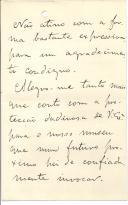 Não atino com a for
ma bastante expressiva
para um agradecimento
condigno.
Alegro-me tanto mais
que conto com a pro-
tecção dadivosa de V. Ex.
para o nosso museu
que num futuro pro-
ximo hei de confiada
mente invocar.